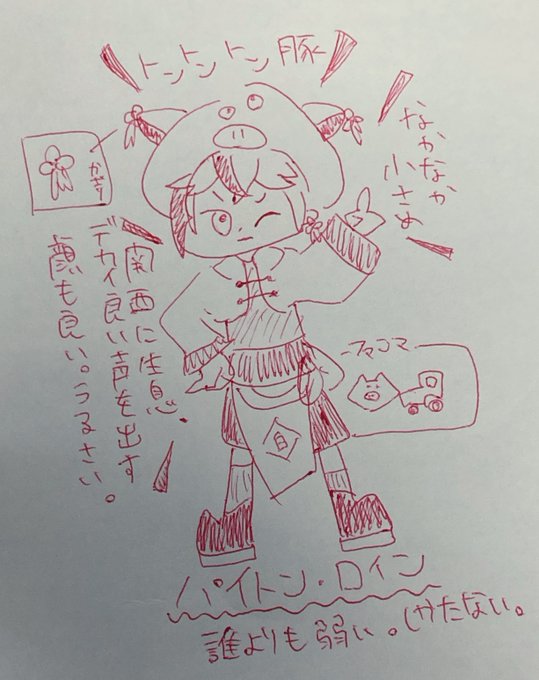 トントントン豚
なかなか
小さめ
かざり
関西に生息。
デカイ良い声を出す
顔も良い。うるさい。
フマコマ
自
パイトン・ロイン
誰よりも弱い。しかたない。